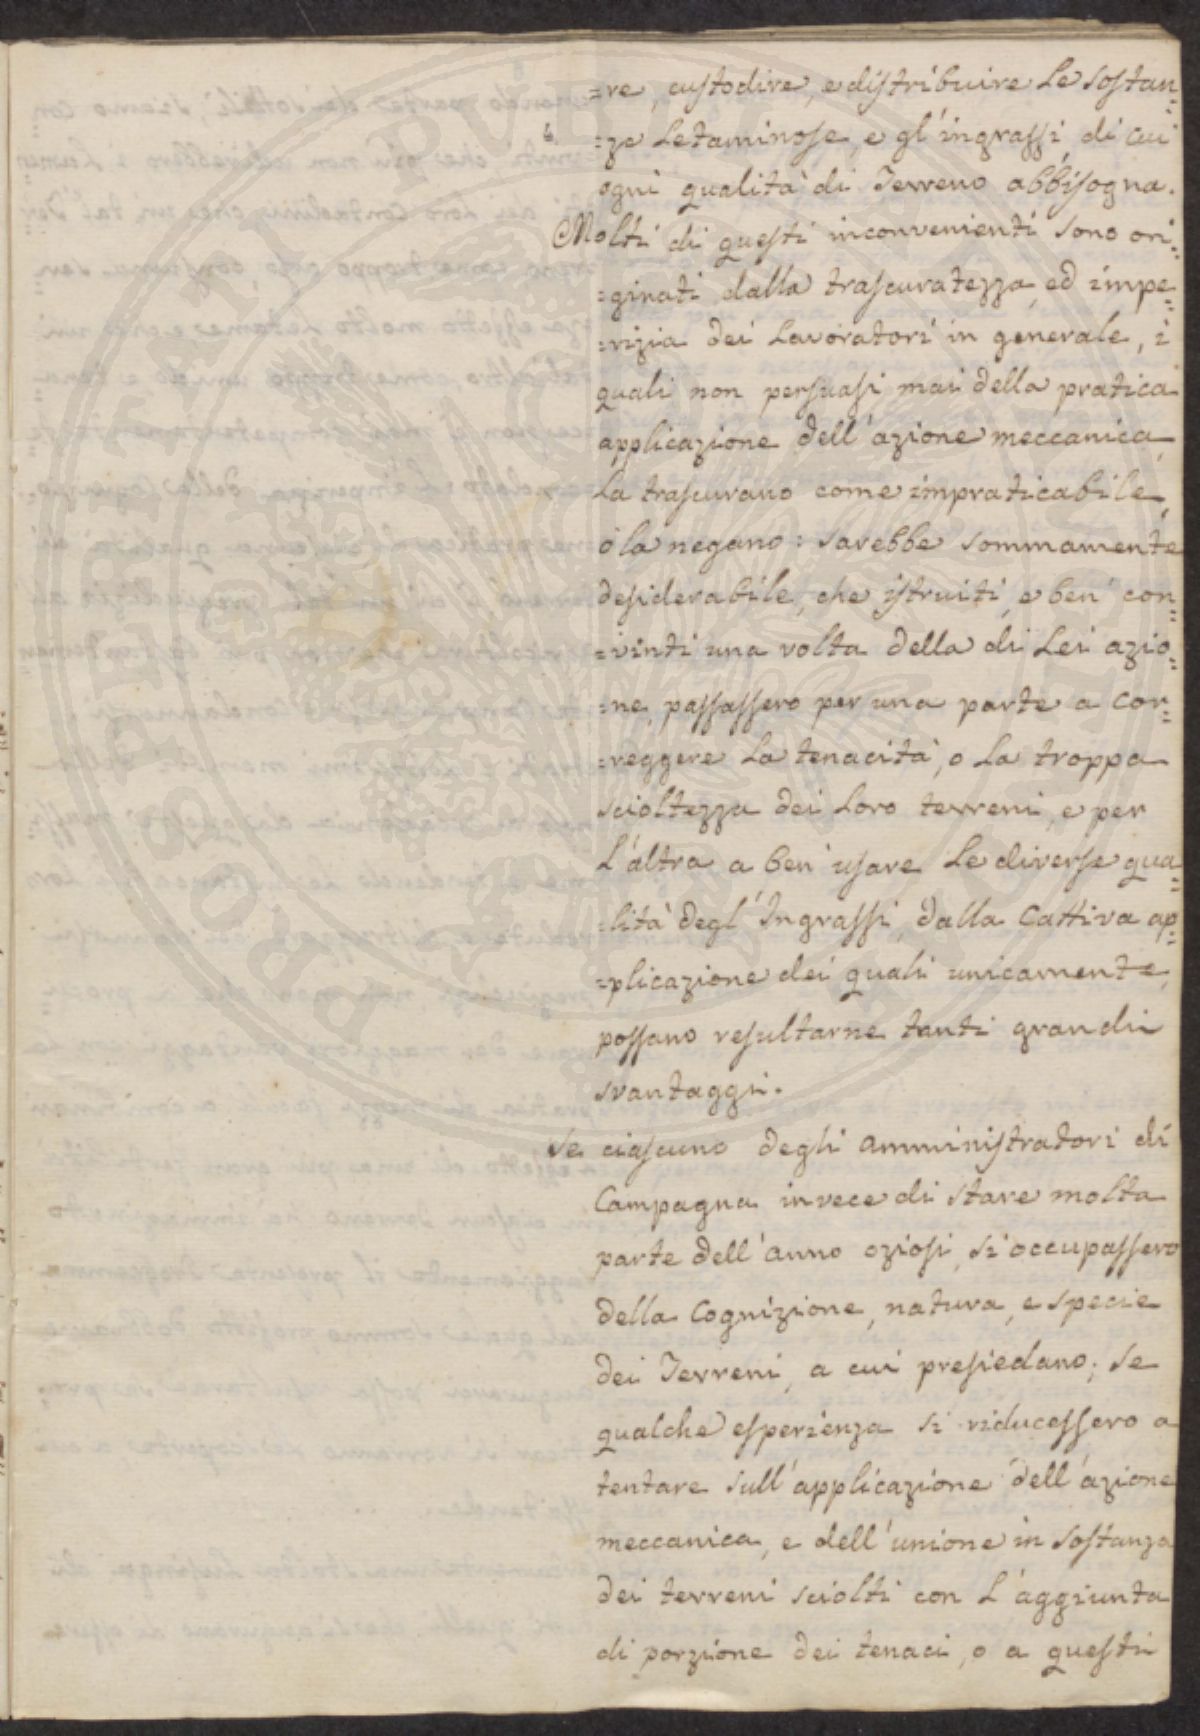 =re, custodire, e distribuire Le Sostan=
=ze Letaminose, e gl'ingrassi, di cui
ogni qualità di Terreno abbisogna.
Molti di questi inconvenienti sono ori=
=ginati dalla trascuratezza, ed impe=
=rizia dei Lavoratori in generale, i
quali non persuasi mai della pratica
applicazione dell'azione meccanica,
La trascurano come impraticabile,
ò la negano: sarebbe sommamente
desiderabile, che istruiti, e ben' con=
=vinti una volta della di Lei azio=
=ne, passassero per una parte a Cor=
=reggere La tenacità, o La troppa
scioltezza dei Loro terreni, e per
L'altra a ben' usare Le diverse qua=
=lità degl'Ingrassi, dalla Cattiva ap=
=plicazione dei quali unicamente,
possano resultarne tanti grandi
svantaggi.
Se ciascuno degli Amministratori di
Campagna invece di stare molta
parte dell'anno oziosi, si occupassero
della Cognizione, natura, e specie
dei Terreni, a cui presiedano; Se
qualche esperienza si riducessero a
tentare sull'applicazione dell'azione
meccanica, e dell'unione in Sostanza
dei terreni sciolti con L'aggiunta
di porzione dei tenaci, o a questi
PUBLI
PROSPERITATI
AUGENDAE